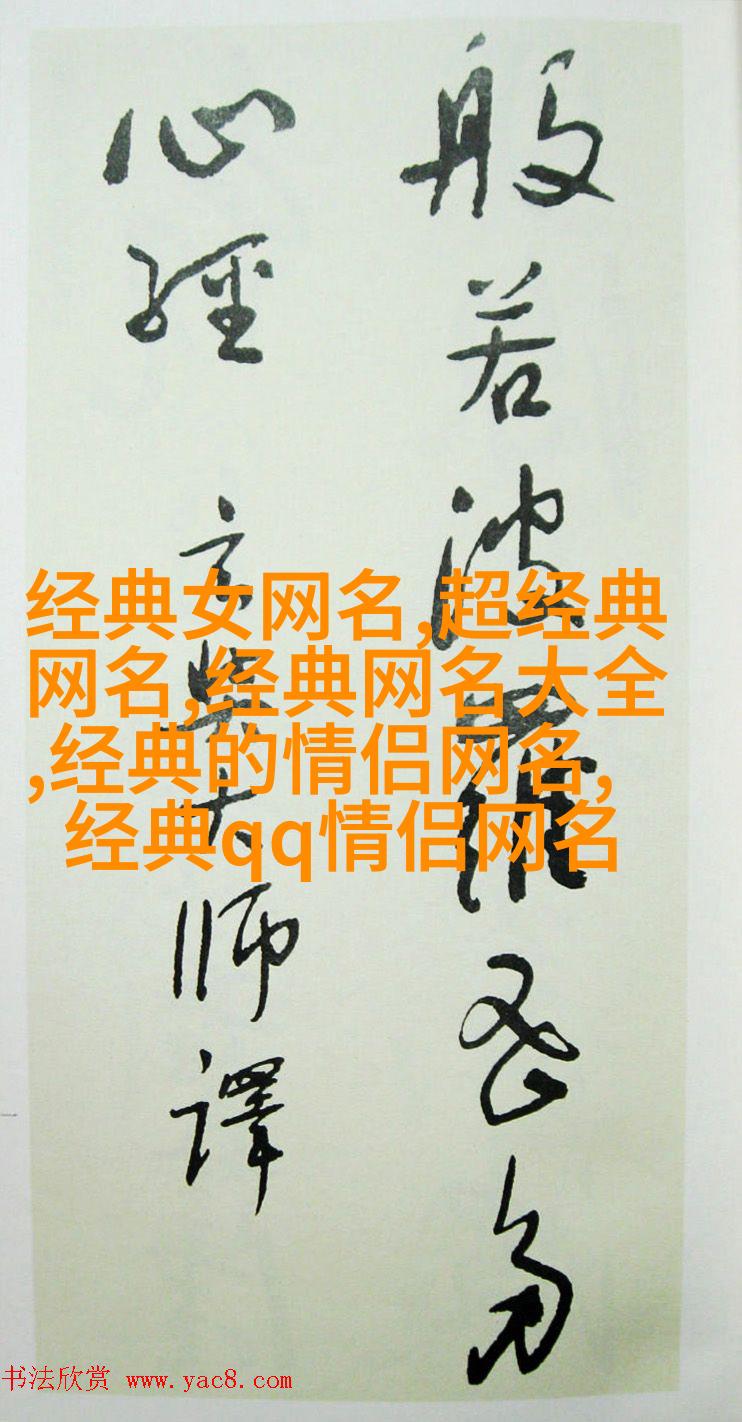 般若波羅密多
心經 玄奘大師譯
经典女网名,超经典
网名,经典网名大全
,经典的情侣网名,
经典qq情侣网名
书法欣赏 www.yac8.com